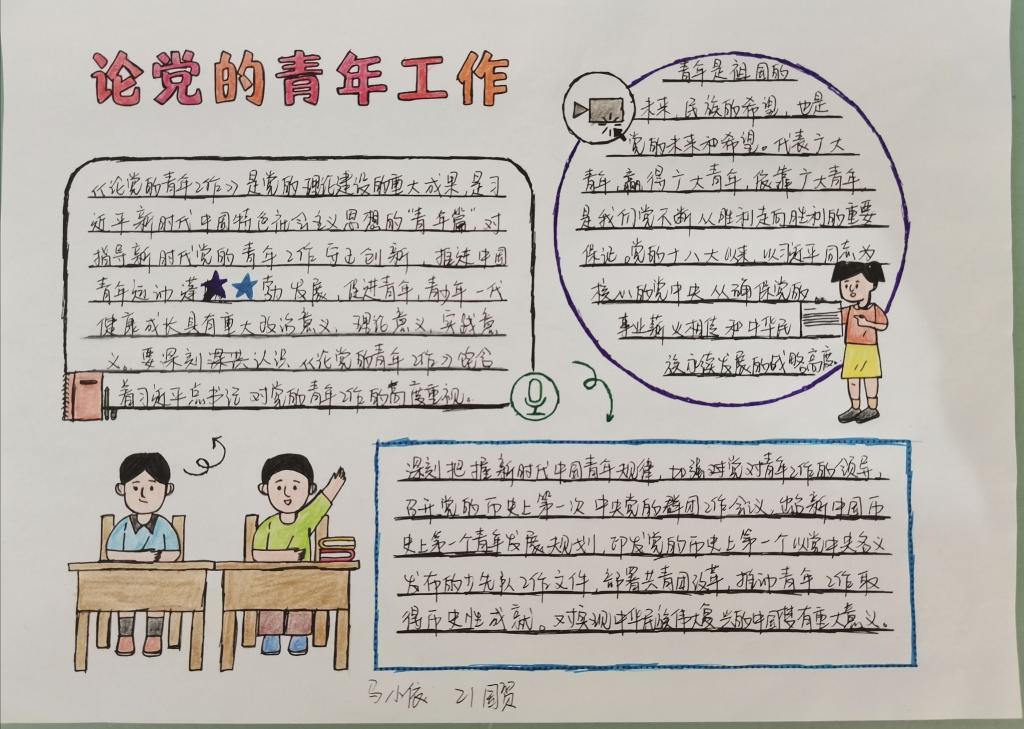 论党的青年工作
《论党的青年工作》是党的理论建设的重大成果,是习
近平新时代中国特色社会主义思想的"青年篇",对
指导新时代党的青年工作守正创新,推进中国
青年运动蓬勃发展,促进青年,青少年一代
健康成长具有重大政治意义,理论意义,实践意
义。要深刻认识《论党的青年工作》饱含
着习近平总书记对党的青年工作的高度重视。
青年是祖国的
未来,民族的希望,也是
党的未来和希望。代表广大
青年,赢得广大青年,依靠广大青年,
是我们党不断从胜利走向胜利的重要
保证。党的十八大以来,以习近平同志为
核心的党中央从确保党的
事业薪火相传和中华民
族永续发展的战略高度。
深刻把握新时代中国青年规律,加强对党对青年工作的领导。
召开党的历史上第一次中央党的群团工作会议,出台新中国历
史上第一个青年发展规划,印发党的历史上第一个以党中央名义
发布的少先队工作文件,部署共青团改革,推动青年工作取
得历史性成就。对实现中华民族伟大复兴的中国梦有重大意义。
马小依 21国贸